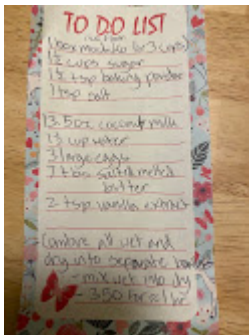 TO DO LIST
1 box mochiko (or 3 cups)
1½ cups sugar
1½ tsp baking powder
1 tsp salt
13.5oz coconut milk
1½ cup water
3 large eggs
7 tbs salted melted
butter
2 tsp vanilla extract
Combine all wet and
dry into separate bowls
- mix wet into dry
- 350 for